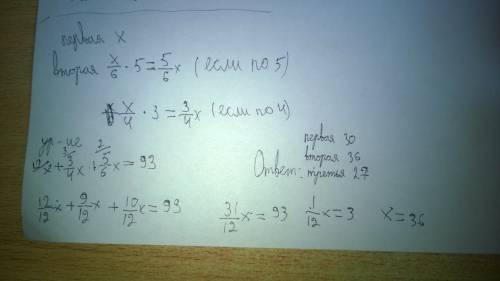 первая x
вторая x/6 · 5 = 5/6 x (если по 5)
x/4 · 3 = 3/4 x (если по 4)
ур-ие
12/12 x + 3/4 x + 5/6 x = 93
12/12 x + 9/12 x + 10/12 x = 93
31/12 x = 93 1/12 x = 3 x = 36
первая 30
вторая 36
Ответ: третья 27